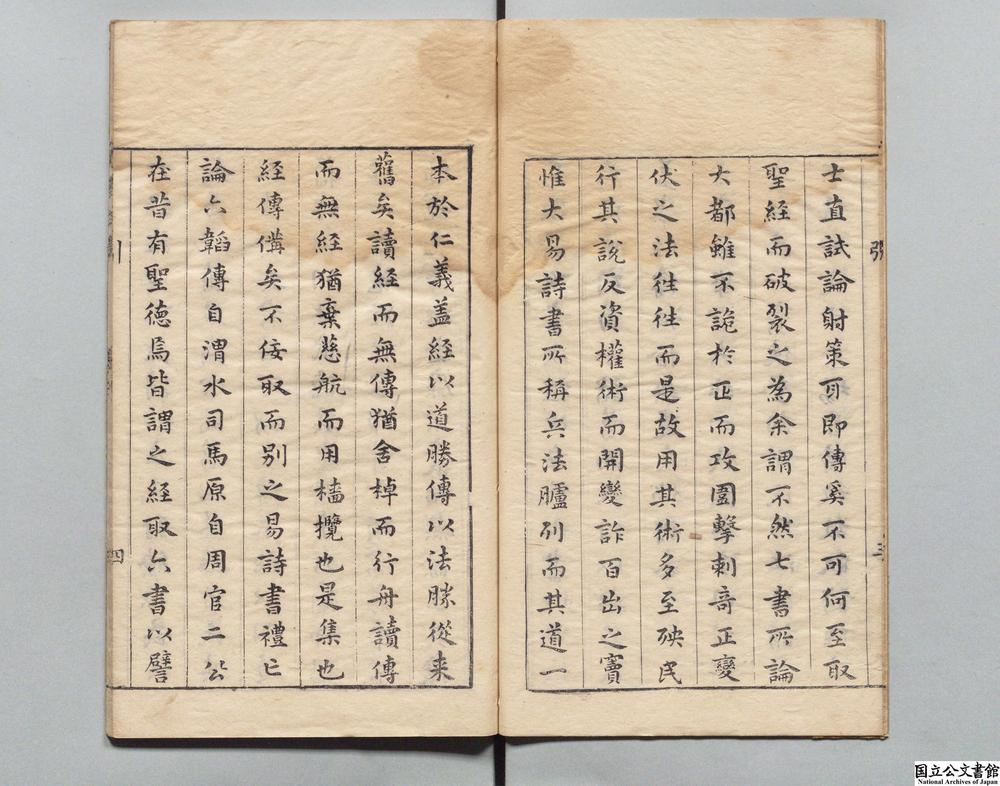 士直試論射策耳即傳奚不可何至取
聖經而破裂之為余謂不然七書所論
大都雖不詭於正而攻圍擊刺奇正變
伏之法徃徃而是故用其術多至殃民
行其說反資權術而開變詐百出之竇
惟大易詩書所稱兵法臚列而其道一
本於仁義盖經以道勝傳以法勝從来
舊矣讀經而無傳猶舍棹而行舟讀傳
而無經猶棄慈航而用檣攬也是集也
經傳備矣不佞取而別之易詩書禮已
論六韜傳自渭水司馬原自周官二公
在昔有聖德焉皆謂之經取六書以譬
四
国立公文書館
National Archives of Japan